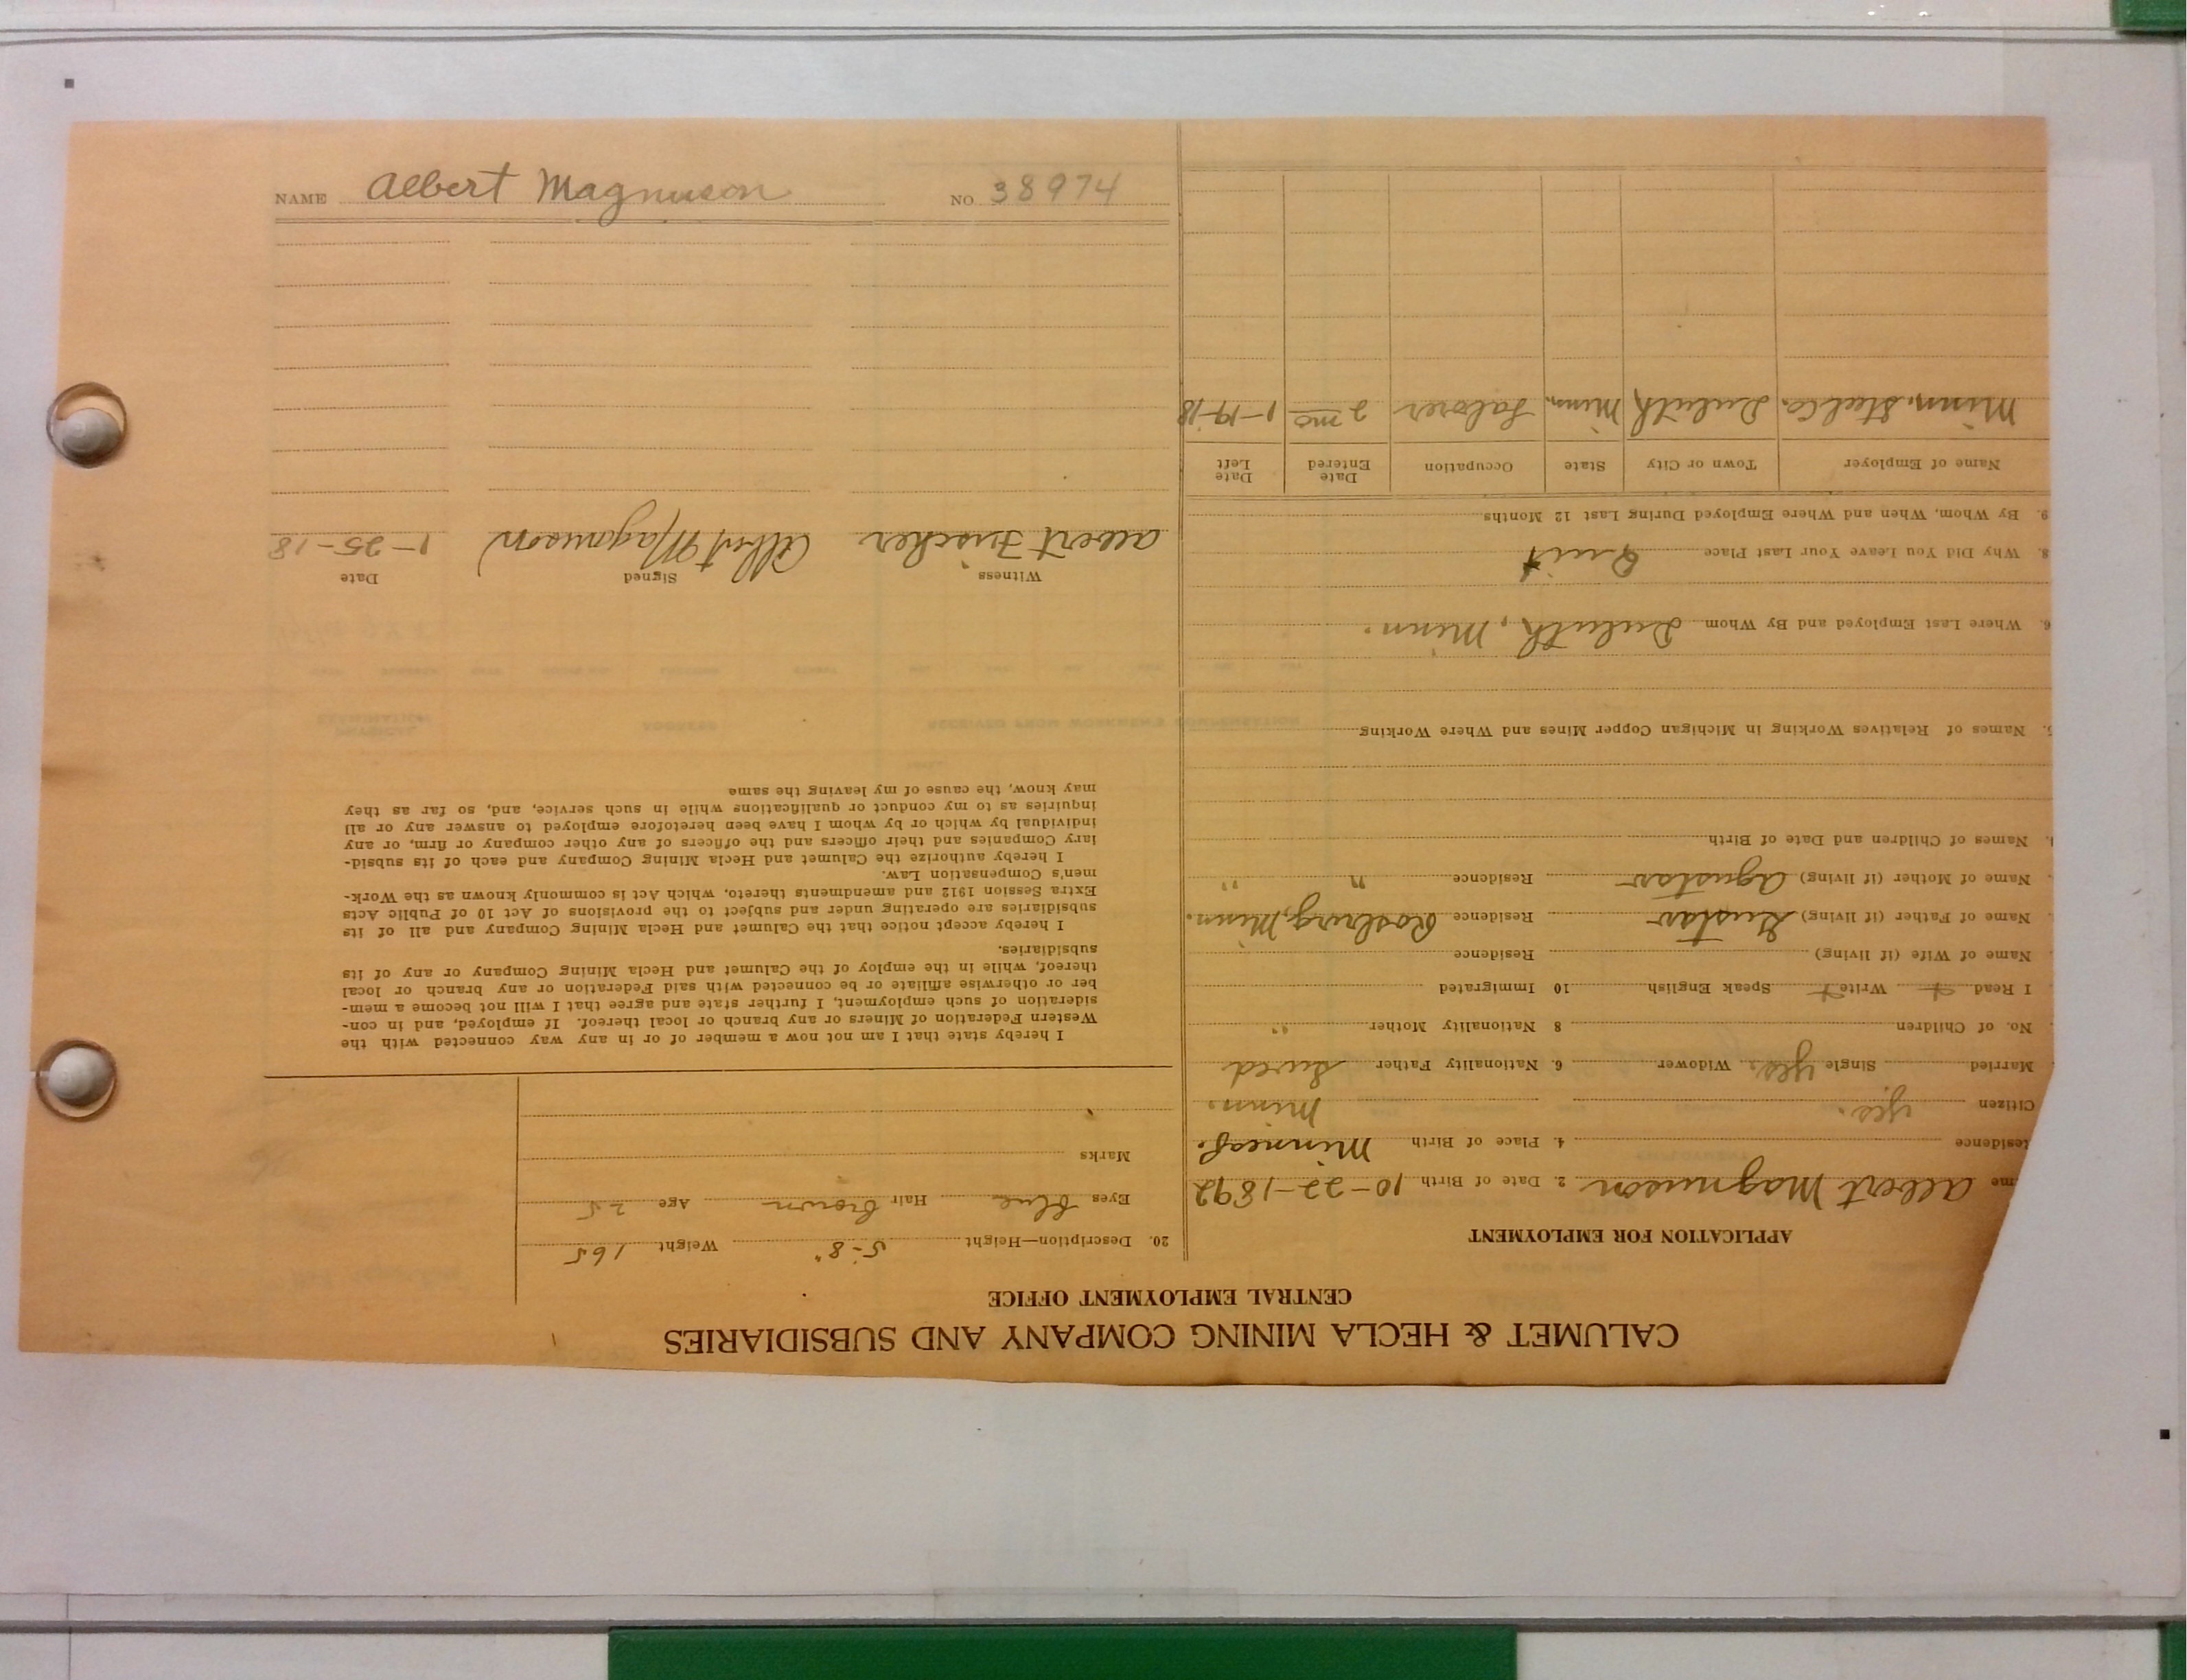 CALUMET & HECLA MINING COMPANY AND SUBSIDIARIES
CENTRAL EMPLOYMENT OFFICE
APPLICATION FOR EMPLOYMENT
me Albert Magnuson 2. Date of Birth 10-22-1892
esidence 4. Place of Birth Minneap.
Citizen yes. Minn.
Married Single yes. Widower 6. Nationality Father Swed
No. of Children 8 Nationality Mother " "
I Read Write Speak English 10 Immigrated
Name of Wife (if living) Residence
Name of Father (if living) Gustav Residence Roseburg, Minn.
Name of Mother (if living) Agustav Residence " "
Names of Children and Date of Birth
5. Names of Relatives Working in Michigan Copper Mines and Where Working
6. Where Last Employed and By Whom Duluth, Minn.
8. Why Did You Leave Your Last Place Quit
9. By Whom, When and Where Employed During Last 12 Months
Name of Employer Town or City State Occupation Date Entered Date Left
Minn. Steel Co. Duluth, Minn. Laborer 2 mo 1-19-18
20. Description—Height 5-8" Weight 165
Eyes blue Hair Brown Age 25
Marks
I hereby state that I am not now a member of or in any way connected with the
Western Federation of Miners or any branch or local thereof. If employed, and in con-
sideration of such employment, I further state and agree that I will not become a mem-
ber or otherwise affiliate or be connected with said Federation or any branch or local
thereof, while in the employ of the Calumet and Hecla Mining Company or any of its
subsidiaries.
I hereby accept notice that the Calumet and Hecla Mining Company and all of its
subsidiaries are operating under and subject to the provisions of Act 10 of Public Acts
Extra Session 1912 and amendments thereto, which Act is commonly known as the Work-
men's Compensation Law.
I hereby authorize the Calumet and Hecla Mining Company and each of its subsid-
iary Companies and their officers and the officers of any other company or firm, or any
individual by which or by whom I have been heretofore employed to answer any or all
inquiries as to my conduct or qualifications while in such service, and, so far as they
may know, the cause of my leaving the same
Witness Signed Date
Albert Fischer Albert Magnuson 1-25-18
NAME Albert Magnuson NO. 38974